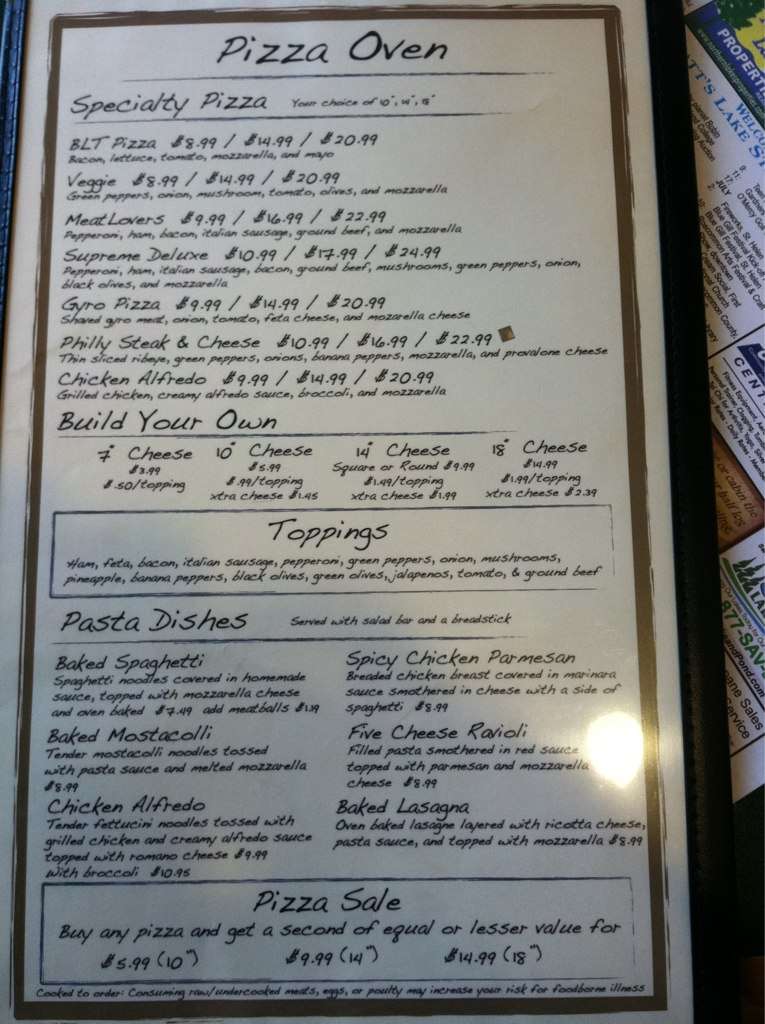 Pizza Oven
Specialty Pizza Your choice of 10", 14", 18"
BLT Pizza $8.99 / $14.99 / $20.99
Bacon, lettuce, tomato, mozzarella, and mayo
Veggie $8.99 / $14.99 / $20.99
Green peppers, onion, mushroom, tomato, olives, and mozzarella
MeatLovers $9.99 / $16.99 / $22.99
Pepperoni, ham, bacon, italian sausage, ground beef, and mozzarella
Supreme Deluxe $10.99 / $17.99 / $24.99
Pepperoni, ham, italian sausage, bacon, ground beef, mushrooms, green peppers, onion,
black olives, and mozzarella
Gyro Pizza $9.99 / $14.99 / $20.99
Shaved gyro meat, onion, tomato, feta cheese, and mozarella cheese
Philly Steak & Cheese $10.99 / $16.99 / $22.99
Thin sliced ribeye, green peppers, onions, banana peppers, mozzarella, and provalone cheese
Chicken Alfredo $9.99 / $14.99 / $20.99
Grilled chicken, creamy alfredo sauce, broccoli, and mozzarella
Build Your Own
7" Cheese
$3.99
$.50/topping
10" Cheese
$5.99
$.99/topping
xtra cheese $1.45
14" Cheese
Square or Round $9.99
$1.49/topping
xtra cheese $1.99
18" Cheese
$14.99
$1.99/topping
xtra cheese $2.39
Toppings
Ham, feta, bacon, italian sausage, pepperoni, green peppers, onion, mushrooms,
pineapple, banana peppers, black olives, green olives, jalapenos, tomato, & ground beef
Pasta Dishes Served with salad bar and a breadstick
Baked Spaghetti
Spaghetti noodles covered in homemade
sauce, topped with mozzarella cheese
and oven baked $7.49 add meatballs $1.19
Baked Mostacolli
Tender mostacolli noodles tossed
with pasta sauce and melted mozzarella
$8.99
Chicken Alfredo
Tender fettucini noodles tossed with
grilled chicken and creamy alfredo sauce
topped with romano cheese $9.99
with broccoli $10.95
Spicy Chicken Parmesan
Breaded chicken breast covered in marinara
sauce smothered in cheese with a side of
spaghetti $8.99
Five Cheese Ravioli
Filled pasta smothered in red sauce
topped with parmesan and mozzarella
cheese $8.99
Baked Lasagna
Oven baked lasagne layered with ricotta cheese,
pasta sauce, and topped with mozzarella $8.99
Pizza Sale
Buy any pizza and get a second of equal or lesser value for
$5.99 (10") $9.99 (14") $14.99 (18")
Cooked to order: Consuming raw/undercooked meats, eggs, or poulty may increase your risk for foodborne illness
PROPERTI
WELCO
TT'S LAKE ST
JULY
CENT
877-SAV
andPond.com
ane Sales
service